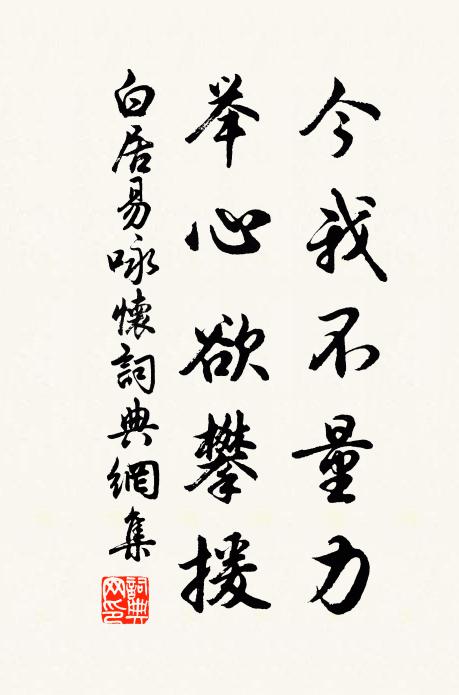 今我不量力
举心欲攀援
白居易咏懷詞典網集
詞典网印